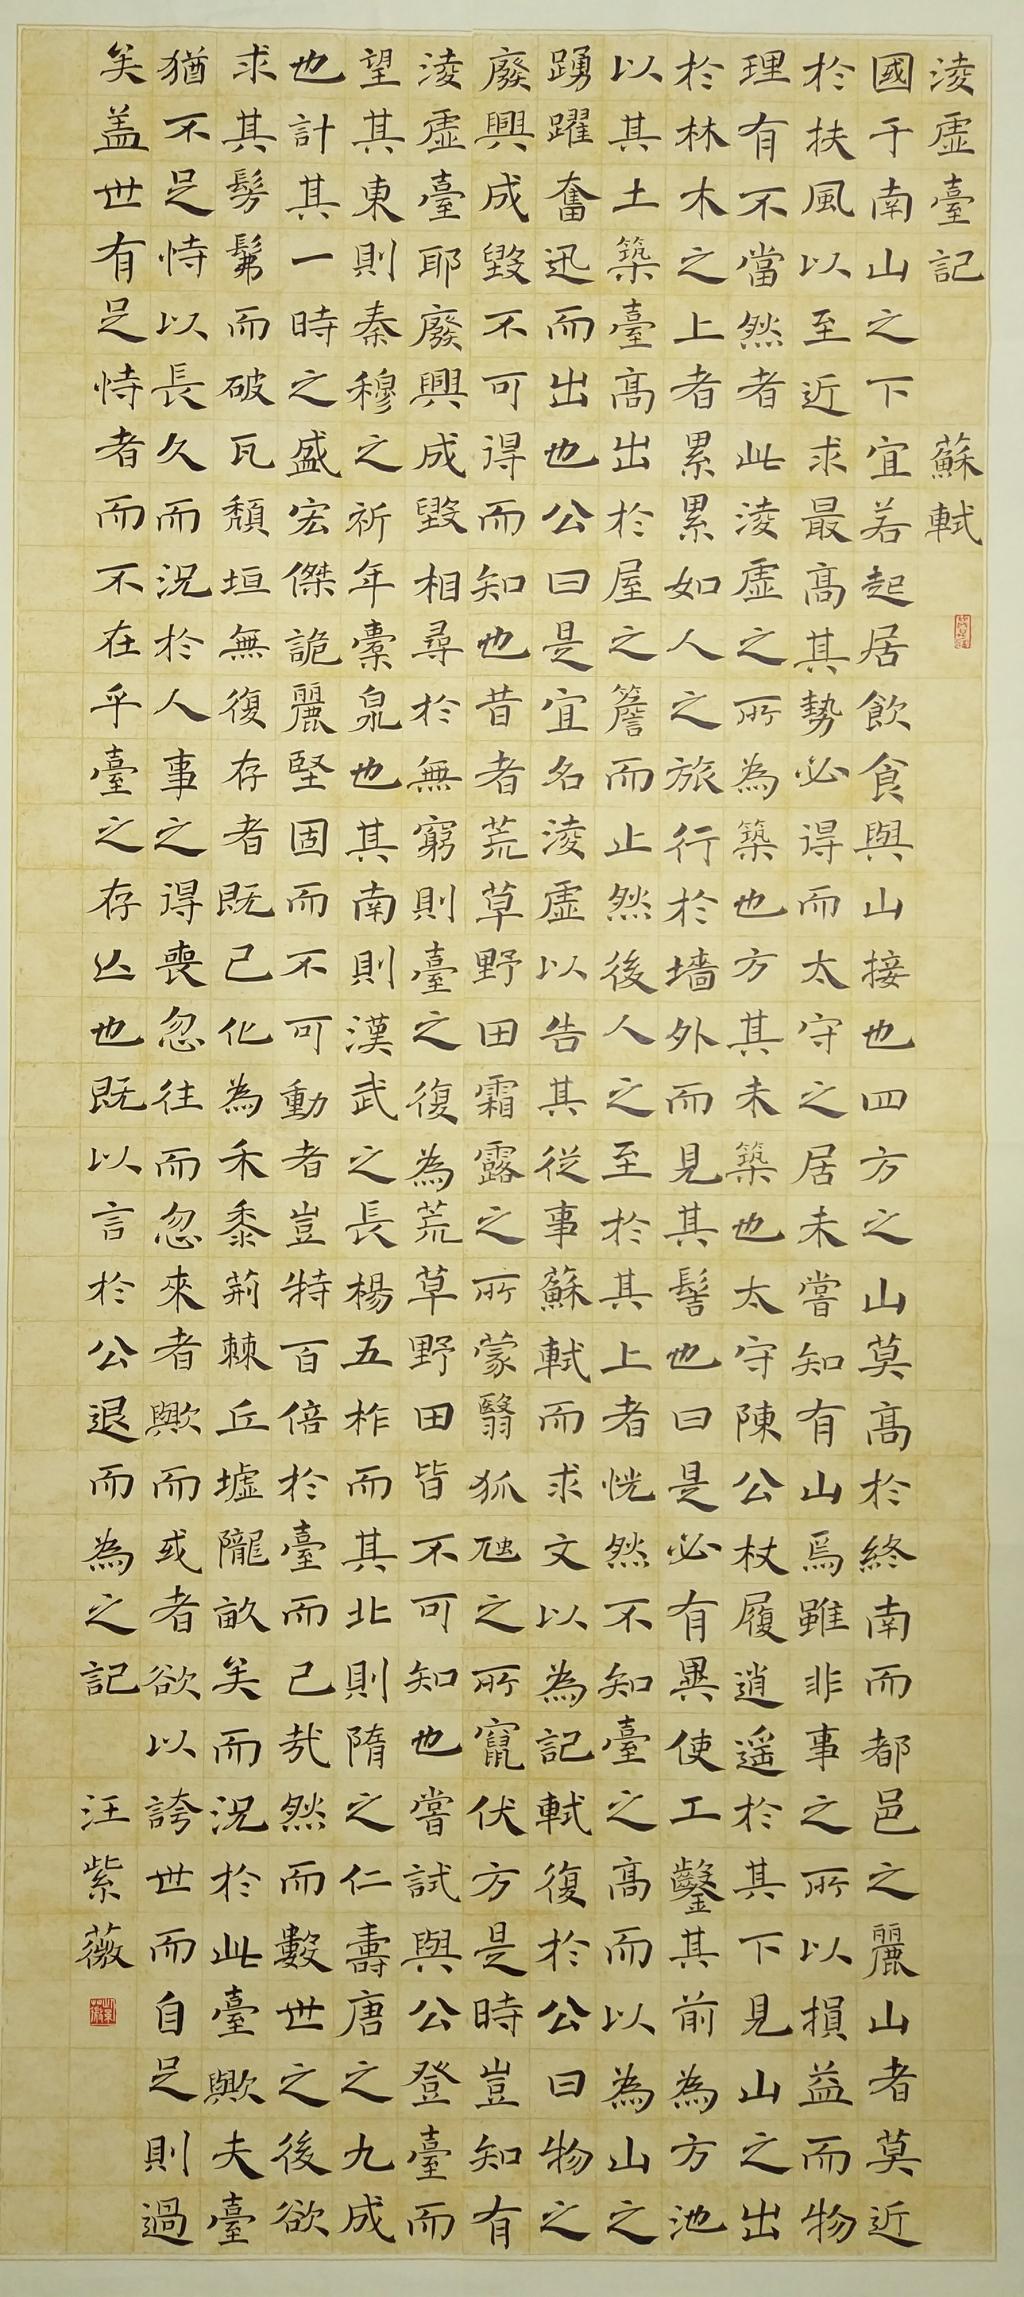 淩虛臺記 蘇軾
國于南山之下宜若起居飲食與山接也四方之山莫高於終南而都邑之麗山者莫近
於扶風以至近求最高其勢必得而太守之居未嘗知有山焉雖非事之所以損益而物
理有不當然者此淩虛之所為築也方其未築也太守陳公杖履逍遙於其下見山之出
於林木之上者累累如人之旅行於墻外而見其髻也曰是必有異使工鑿其前為方池
以其土築臺高出於屋之簷而止然後人之至於其上者恍然不知臺之高而以為山之
踴躍奮迅而出也公曰是宜名淩虛以告其從事蘇軾而求文以為記軾復於公曰物之
廢興成毀不可得而知也昔者荒草野田霜露之所蒙翳狐虺之所竄伏方是時豈知有
淩虛臺耶廢興成毀相尋於無窮則臺之復為荒草野田皆不可知也嘗試與公登臺而
望其東則秦穆之祈年橐泉也其南則漢武之長楊五柞而其北則隋之仁壽唐之九成
也計其一時之盛宏傑詭麗堅固而不可動者豈特百倍於臺而已哉然而數世之後欲
求其髣髴而破瓦頹垣無復存者既已化為禾黍荊棘丘墟隴畝矣而況於此臺歟夫臺
猶不足恃以長久而況於人事之得喪忽往而忽來者歟而或者欲以誇世而自足則過
矣蓋世有足恃者而不在乎臺之存亾也既以言於公退而為之記 汪紫薇